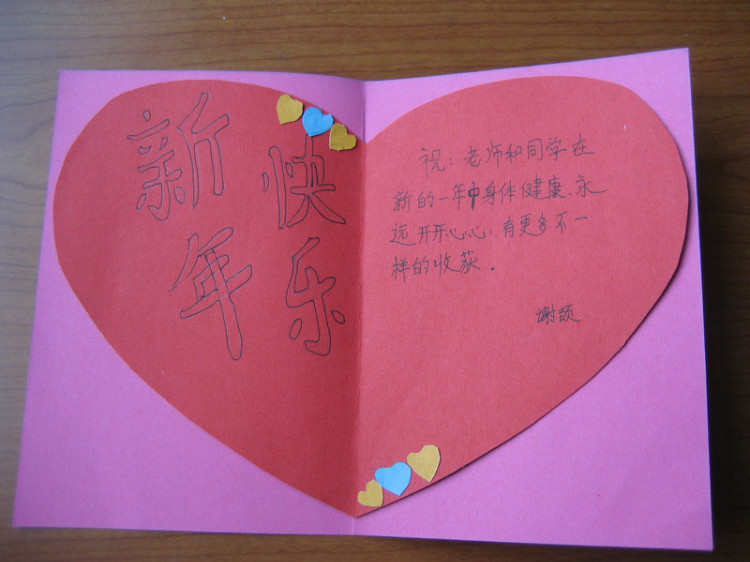 新年
快乐
祝：老师和同学在
新的一年中身体健康、永
远开开心心，有更多不一
样的收获.
谢